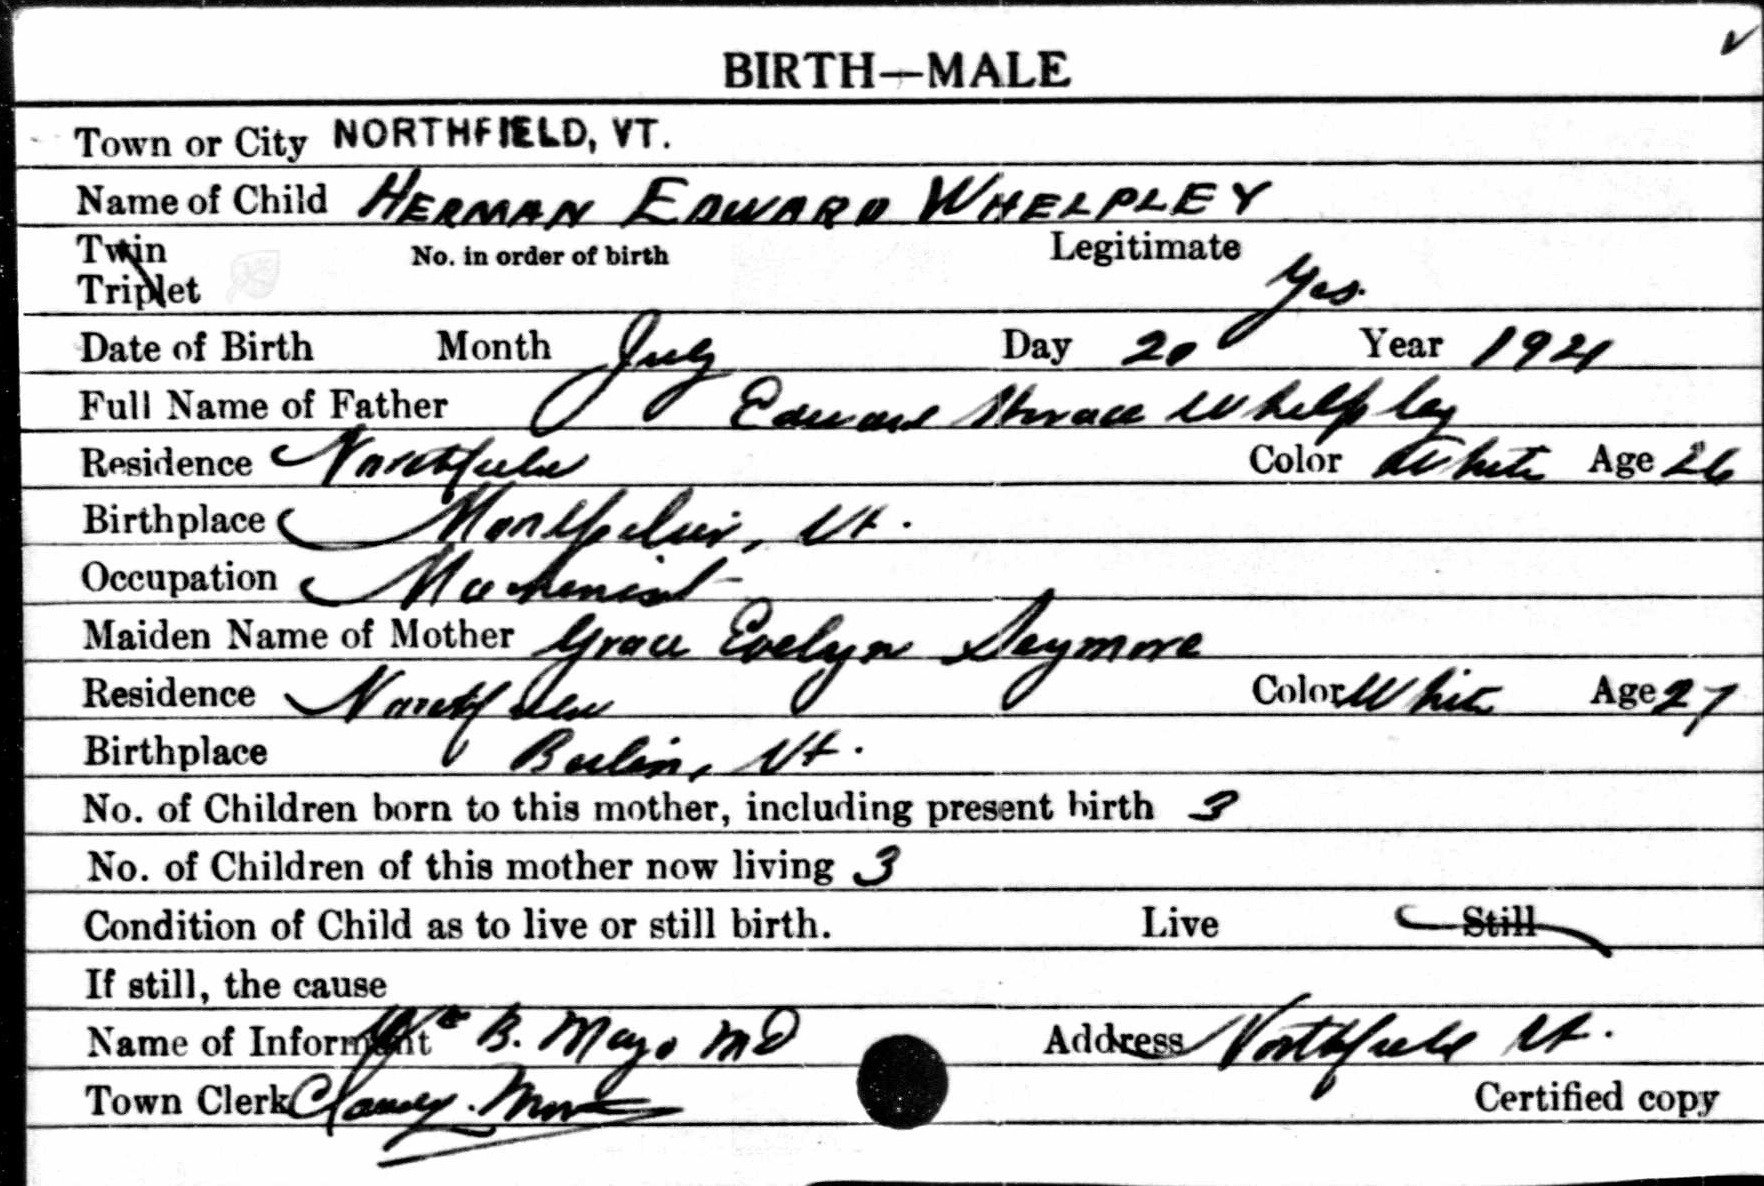 BIRTH—MALE
Town or City NORTHFIELD, VT.
Name of Child HERMAN EDWARD WHELPLEY
Twin No. in order of birth Legitimate Yes.
Triplet
Date of Birth Month July Day 20 Year 1921
Full Name of Father Edward Horace Whelpley
Residence Northfield Color White Age 26
Birthplace Montpelier, Vt.
Occupation Machinist
Maiden Name of Mother Grace Evelyn Seymore
Residence Northfield Color White Age 27
Birthplace Berlin, Vt.
No. of Children born to this mother, including present birth 3
No. of Children of this mother now living 3
Condition of Child as to live or still birth. Live Still
If still, the cause
Name of Informant Wm B. Mayo MD Address Northfield Vt.
Town Clerk Certified copy